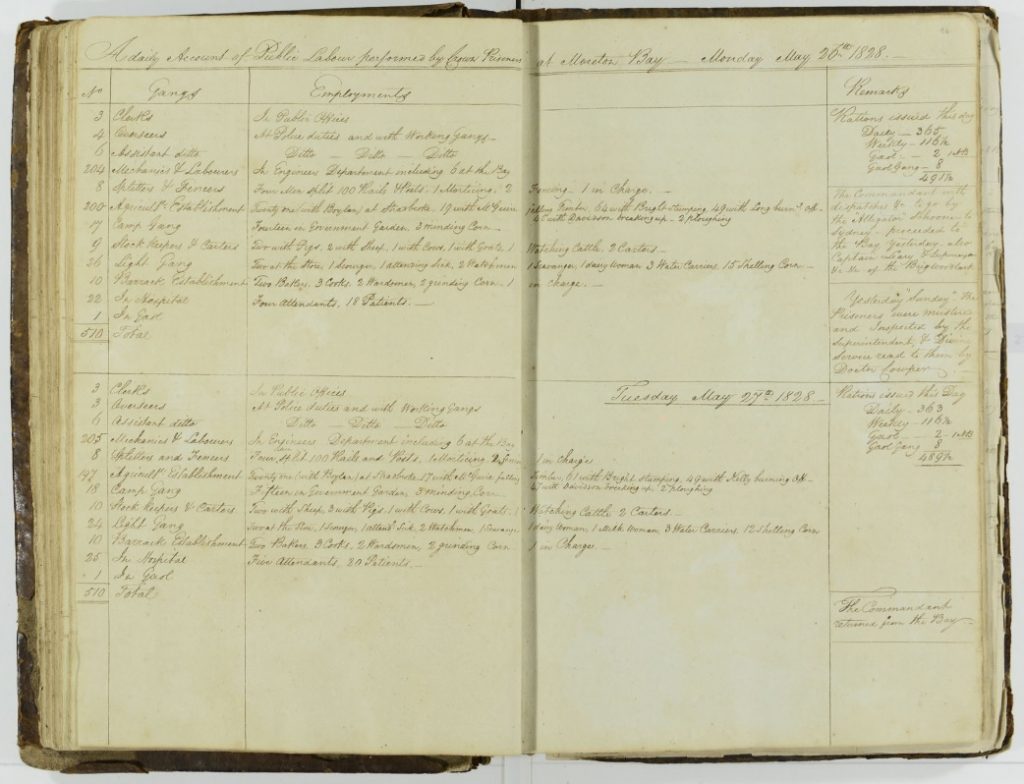 A daily Account of Public Labour performed by Crown Prisoners at Moreton Bay — Monday May 26th 1828. —
No Gangs Employments Remarks
3 Clerks In Public Offices
4 Overseers At Police duties and with Working Gangs —
6 Assistant ditto Ditto — Ditto — Ditto
204 Mechanics & Labourers In Engineers Department including 6 at the Bay
8 Splitters & Fencers Four Men split 100 Rails & Posts. 1 Morticing. 2 Fencing — 1 in Charge. —
200 Agricult. Establishment Twenty one (with Boylan) at Strabroke. 19 with McGuire falling Timber, 64 with Bright stumping, 49 with Long burng off — 45 with Davidson breaking up — 2 ploughing
17 Camp Gang Fourteen in Government Garden, 3 minding Corn —
9 Stock Keepers & Carters Two with Pigs, 2 with Sheep, 1 with Cows, 1 with Goats, 1 Watching Cattle 2 Carters —
26 Light Gang Two at the Store, 1 Sawyer, 1 attending Sick, 2 Watchmen 1 Scavenger, 1 dairy Woman 3 Water Carriers 15 Shelling Corn —
10 Barrack Establishment Two Bakers, 3 Cooks, 2 Wardsmen, 2 grinding Corn. 1 in charge. —
22 In Hospital Four Attendants, 18 Patients. —
1 In Gaol
510 Total
Rations issued this day
Daily — 365
Weekly — 116½
Gaol — 2
Gaol Gang — 8
491½
The Commandant with
dispatches &c to go by
the Alligator Schooner to
Sydney — proceeded to
the Bay Yesterday, also
Captain Leary &
&c &c of the Brig
Yesterday "Sunday" the
Prisoners were mustered
and Inspected by the
Superintendent, & Divine
Service read to them by
Doctor Cowper —
Tuesday May 27th 1828 —
3 Clerks In Public Offices
3 Overseers At Police duties and with Working Gangs
6 Assistant ditto Ditto — Ditto — Ditto
205 Mechanics & Labourers In Engineers Department including 6 at the Bay
8 Splitters and Fencers Four split 100 Rails and Posts, 1 Morticing 2 Fencing 1 in Charge
197 Agricult. Establishment Twenty one (with Boylan) at Strabroke 17 with McGuire falling Timber, 61 with Bright stumping, 49 with Nelly burning off — 47 with Davidson breaking up, 2 ploughing
18 Camp Gang Fifteen in Government Garden, 3 minding Corn —
10 Stock Keepers & Carters Two with Sheep, 3 with Pigs, 1 with Cows, 1 with Goats, 1 Watching Cattle 2 Carters —
24 Light Gang Two at the Store, 1 Sawyer, 1 attendg Sick, 2 Watchmen, 1 Scavenger 1 dairy Woman, 1 Milk Woman 3 Water Carriers, 12 Shelling Corn
10 Barrack Establishment Two Bakers, 3 Cooks, 2 Wardsmen, 2 grinding Corn 1 in Charge. —
25 In Hospital Five Attendants, 20 Patients. —
1 In Gaol
510 Total
Rations issued this Day
Daily — 363
Weekly — 116½
Gaol — 2
Gaol Gang 8
489½
The Commandant
returned from the Bay —